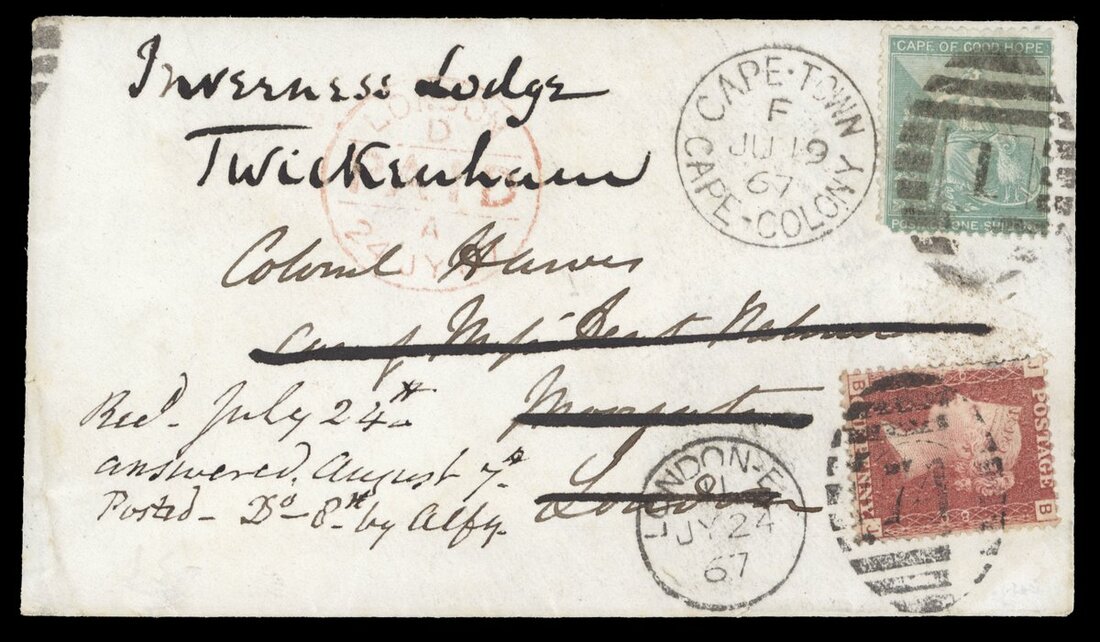 Inverness Lodge
Twickenham
CAPE·TOWN
F
JU 19
67
CAPE-COLONY
CAPE OF GOOD HOPE
POSTAGE ONE SHILLING
1
LONDON
D
PAID
A
24 JY
Colonel
care of
London
Recd. July 24th
answered. August 7th
Posted - Do - 8th by Alfy.
LONDON-E
JY 24
67
POSTAGE
ONE PENNY
J B
B J